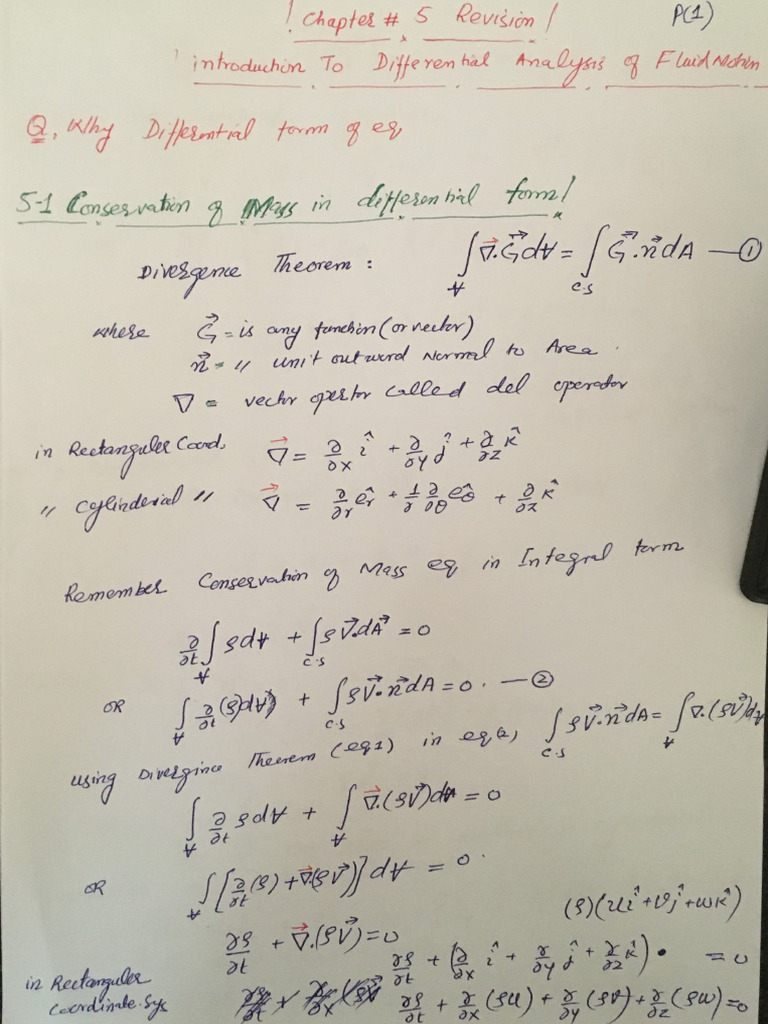 ! Chapter # 5 Revision !
P(1)
! introduction To Differential Analysis of Fluid Motion
Q, Why Differential form of eq
5-1 Conservation of Mass in differential form!
Divergence Theorem : ∫_∀ ∇⃗.G⃗ d∀ = ∫_c.s G⃗.n⃗ dA — ①
where G⃗ = is any function (or vector)
n⃗ = " unit outword Normal to Area .
∇ = vector opertor called del operator
in Rectanguler Coord, ∇⃗ = ∂/∂x î + ∂/∂y ĵ + ∂/∂z k̂
" Cylinderial " ∇⃗ = ∂/∂r êr + 1/r ∂/∂θ êθ + ∂/∂z k̂
Remember Conservation of Mass eq in Integral form
∂/∂t ∫_∀ ρd∀ + ∫_c.s ρV⃗.dA⃗ = 0
OR ∫_∀ ∂/∂t (ρ)d∀ + ∫_c.s ρV⃗.n⃗ dA = 0. — ②
using Divergince Theorem (eq1) in eq2, ∫_c.s ρV⃗.n⃗ dA = ∫_∀ ∇.(ρV⃗)d∀
∫_∀ ∂/∂t ρd∀ + ∫_∀ ∇⃗.(ρV⃗)d∀ = 0
OR ∫_∀ [∂/∂t (ρ) + ∇⃗.(ρV⃗)] d∀ = 0.
∂ρ/∂t + ∇⃗.(ρV⃗) = 0
(ρ)(uî + vĵ + wk̂)
∂ρ/∂t + (∂/∂x î + ∂/∂y ĵ + ∂/∂z k̂) • = 0
in Rectanguler
Coordinate.sys
∂ρ/∂t + ∂/∂x (ρu) + ∂/∂y (ρv) + ∂/∂z (ρw) = 0